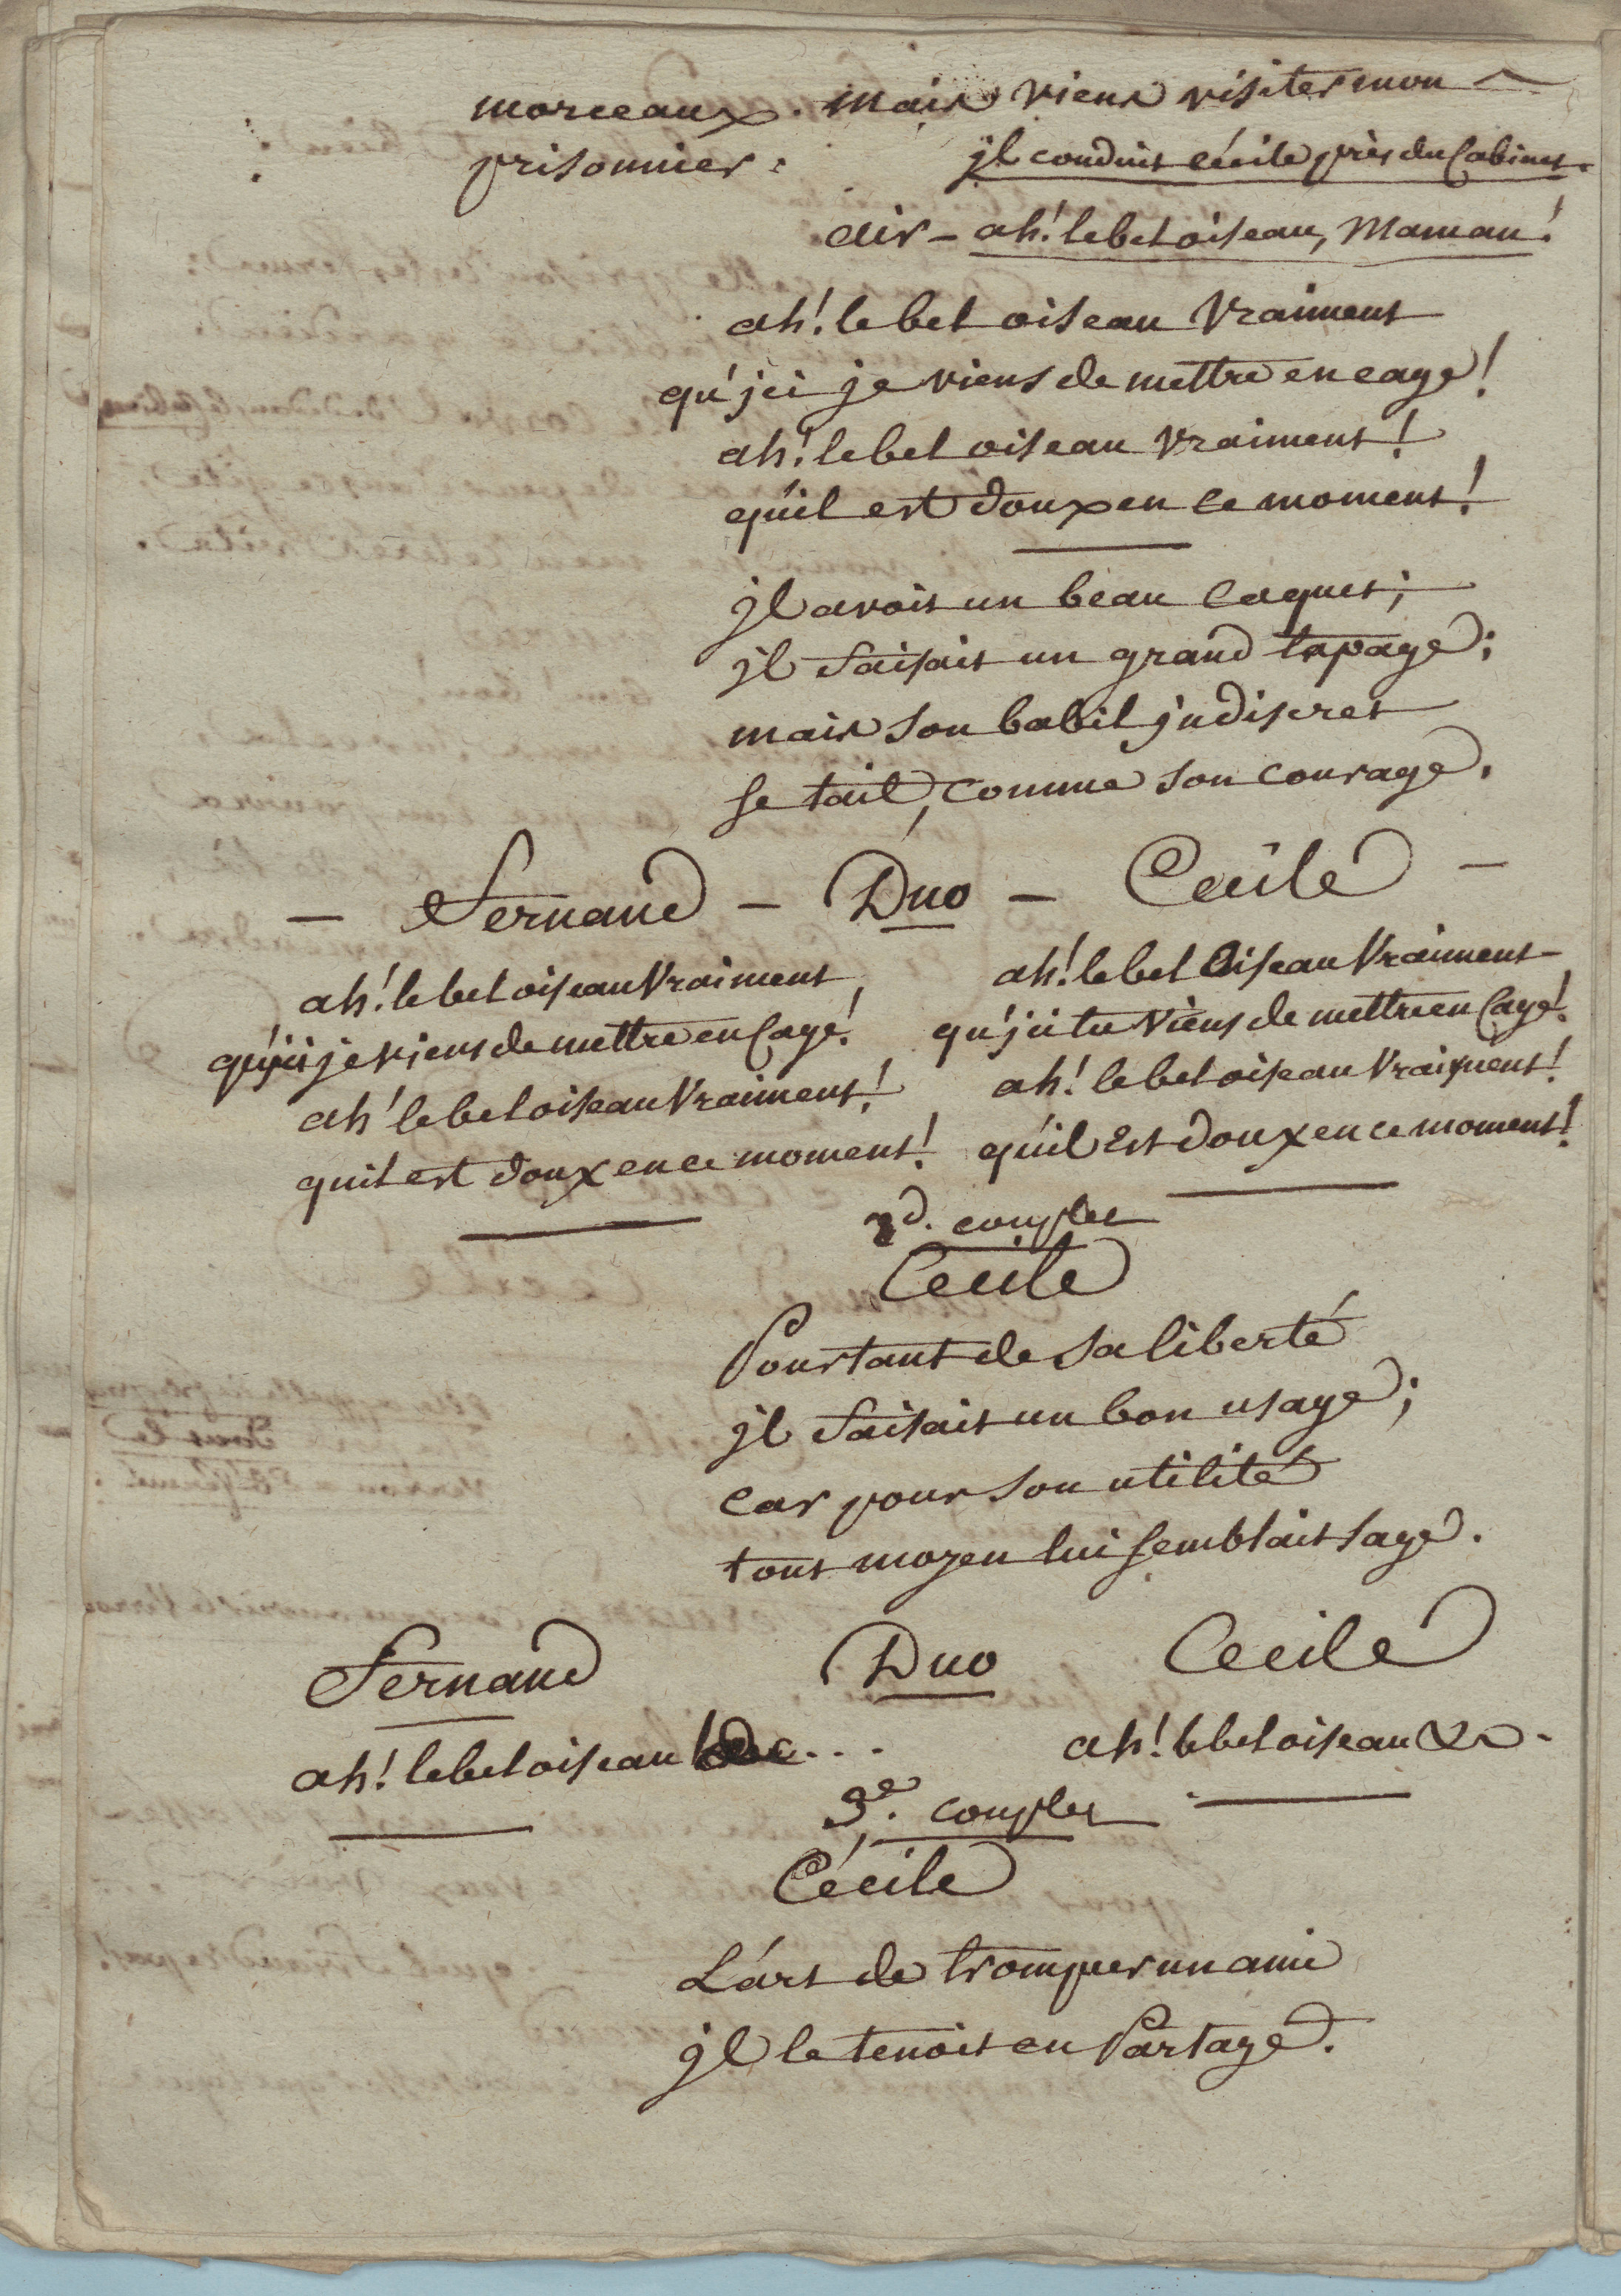 morceaux. mais viens visiter mon
prisonnier.
jl conduit cécile près du Cabinet.
air - ah! le bel oiseau, Maman!
ah! le bel oiseau Vraiment
qu'jci je viens de mettre en cage!
ah! le bel oiseau Vraiment!
qu'il est doux en ce moment!
jl avoit un beau caquet;
jl faisait un grand tapage;
mais son babil jndiscret
se tait, comme son courage.
- Fernand - Duo - Cecile -
ah! le bel oiseau Vraiment
qu'jci je viens de mettre en Cage!
ah! le bel oiseau Vraiment!
qu'il est doux en ce moment!
ah! le bel Oiseau Vraiment
qu'jci tu Viens de mettre en Cage!
ah! le bel oiseau Vraiment!
qu'il Est doux en ce moment!
2d. couplet
Cecile
Pourtant de sa liberté
jl faisait un bon usage;
car pour son utilité
tout moyen lui semblait sage.
Fernand Duo Cecile
ah! le bel oiseau &c...
ah! le bel oiseau &c.
3e. couplet
Cécile
L'art de tromper un ami
jl le tenoit en Partage.